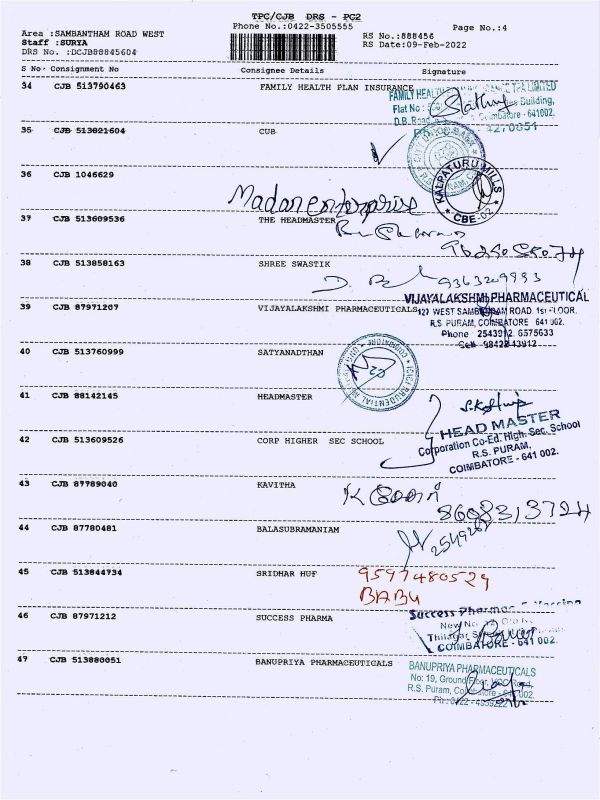 TPC/CJB DRS - PC2
Phone No.:0422-3505555
Page No.:4
Area :SAMBANTHAM ROAD WEST
Staff :SURYA
DRS No. :DCJB88845604
RS No.:888456
RS Date:09-Feb-2022
S No Consignment No Consignee Details Signature
34 CJB 513790463 FAMILY HEALTH PLAN INSURANCE
FAMILY HEALTH TPA LIMITED
Flat No : Building,
D.B. Road, Coimbatore - 641002.
4270051
35 CJB 513821604 CUB
36 CJB 1046629
KALPATURU MILLS
* CBE-02 *
Madan enterprise
37 CJB 513609536 THE HEADMASTER
38 CJB 513858163 SHREE SWASTIK
9363209993
39 CJB 87971207 VIJAYALAKSHMI PHARMACEUTICALS
VIJAYALAKSHMI PHARMACEUTICAL
127 WEST SAMBANDAM ROAD. 1st FLOOR.
R.S. PURAM, COIMBATORE 641 002.
Phone : 2543912. 6575633
Cell: 98422 43912
40 CJB 513760999 SATYANADTHAN
ICICI PRUDENTIAL
COIMBATORE
41 CJB 88142145 HEADMASTER
HEAD MASTER
Corporation Co-Ed. High. Sec. School
R.S. PURAM,
COIMBATORE - 641 002.
42 CJB 513609526 CORP HIGHER SEC SCHOOL
43 CJB 87789040 KAVITHA
8608313724
44 CJB 87780481 BALASUBRAMANIAM
45 CJB 513844734 SRIDHAR HUF
9597480529
BABU
46 CJB 87971212 SUCCESS PHARMA
Success Pharma
New No.
COIMBATORE - 641 002.
47 CJB 513880051 BANUPRIYA PHARMACEUTICALS
BANUPRIYA PHARMACEUTICALS
No: 19, Ground Floor, VCC Road,
R.S. Puram, Coimbatore - 641 002.
Ph : 0422 - 4959222